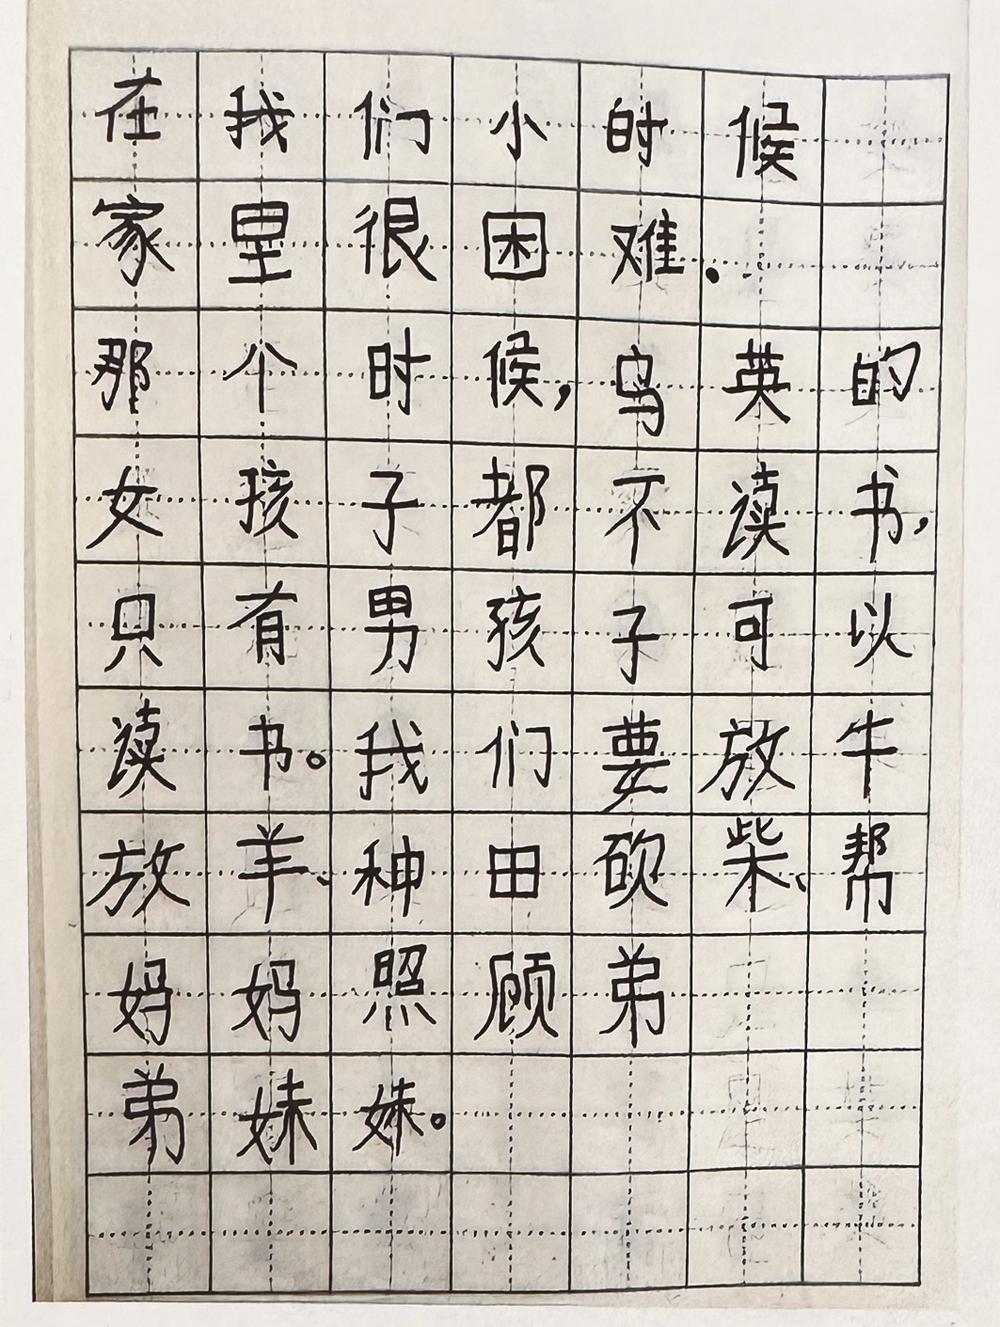 在我们小时候
家里很困难.
那个时候,乌英的
女孩子都不读书,
只有男孩子可以
读书。我们要放牛
放羊、种田砍柴、帮
妈妈照顾弟
弟妹妹。